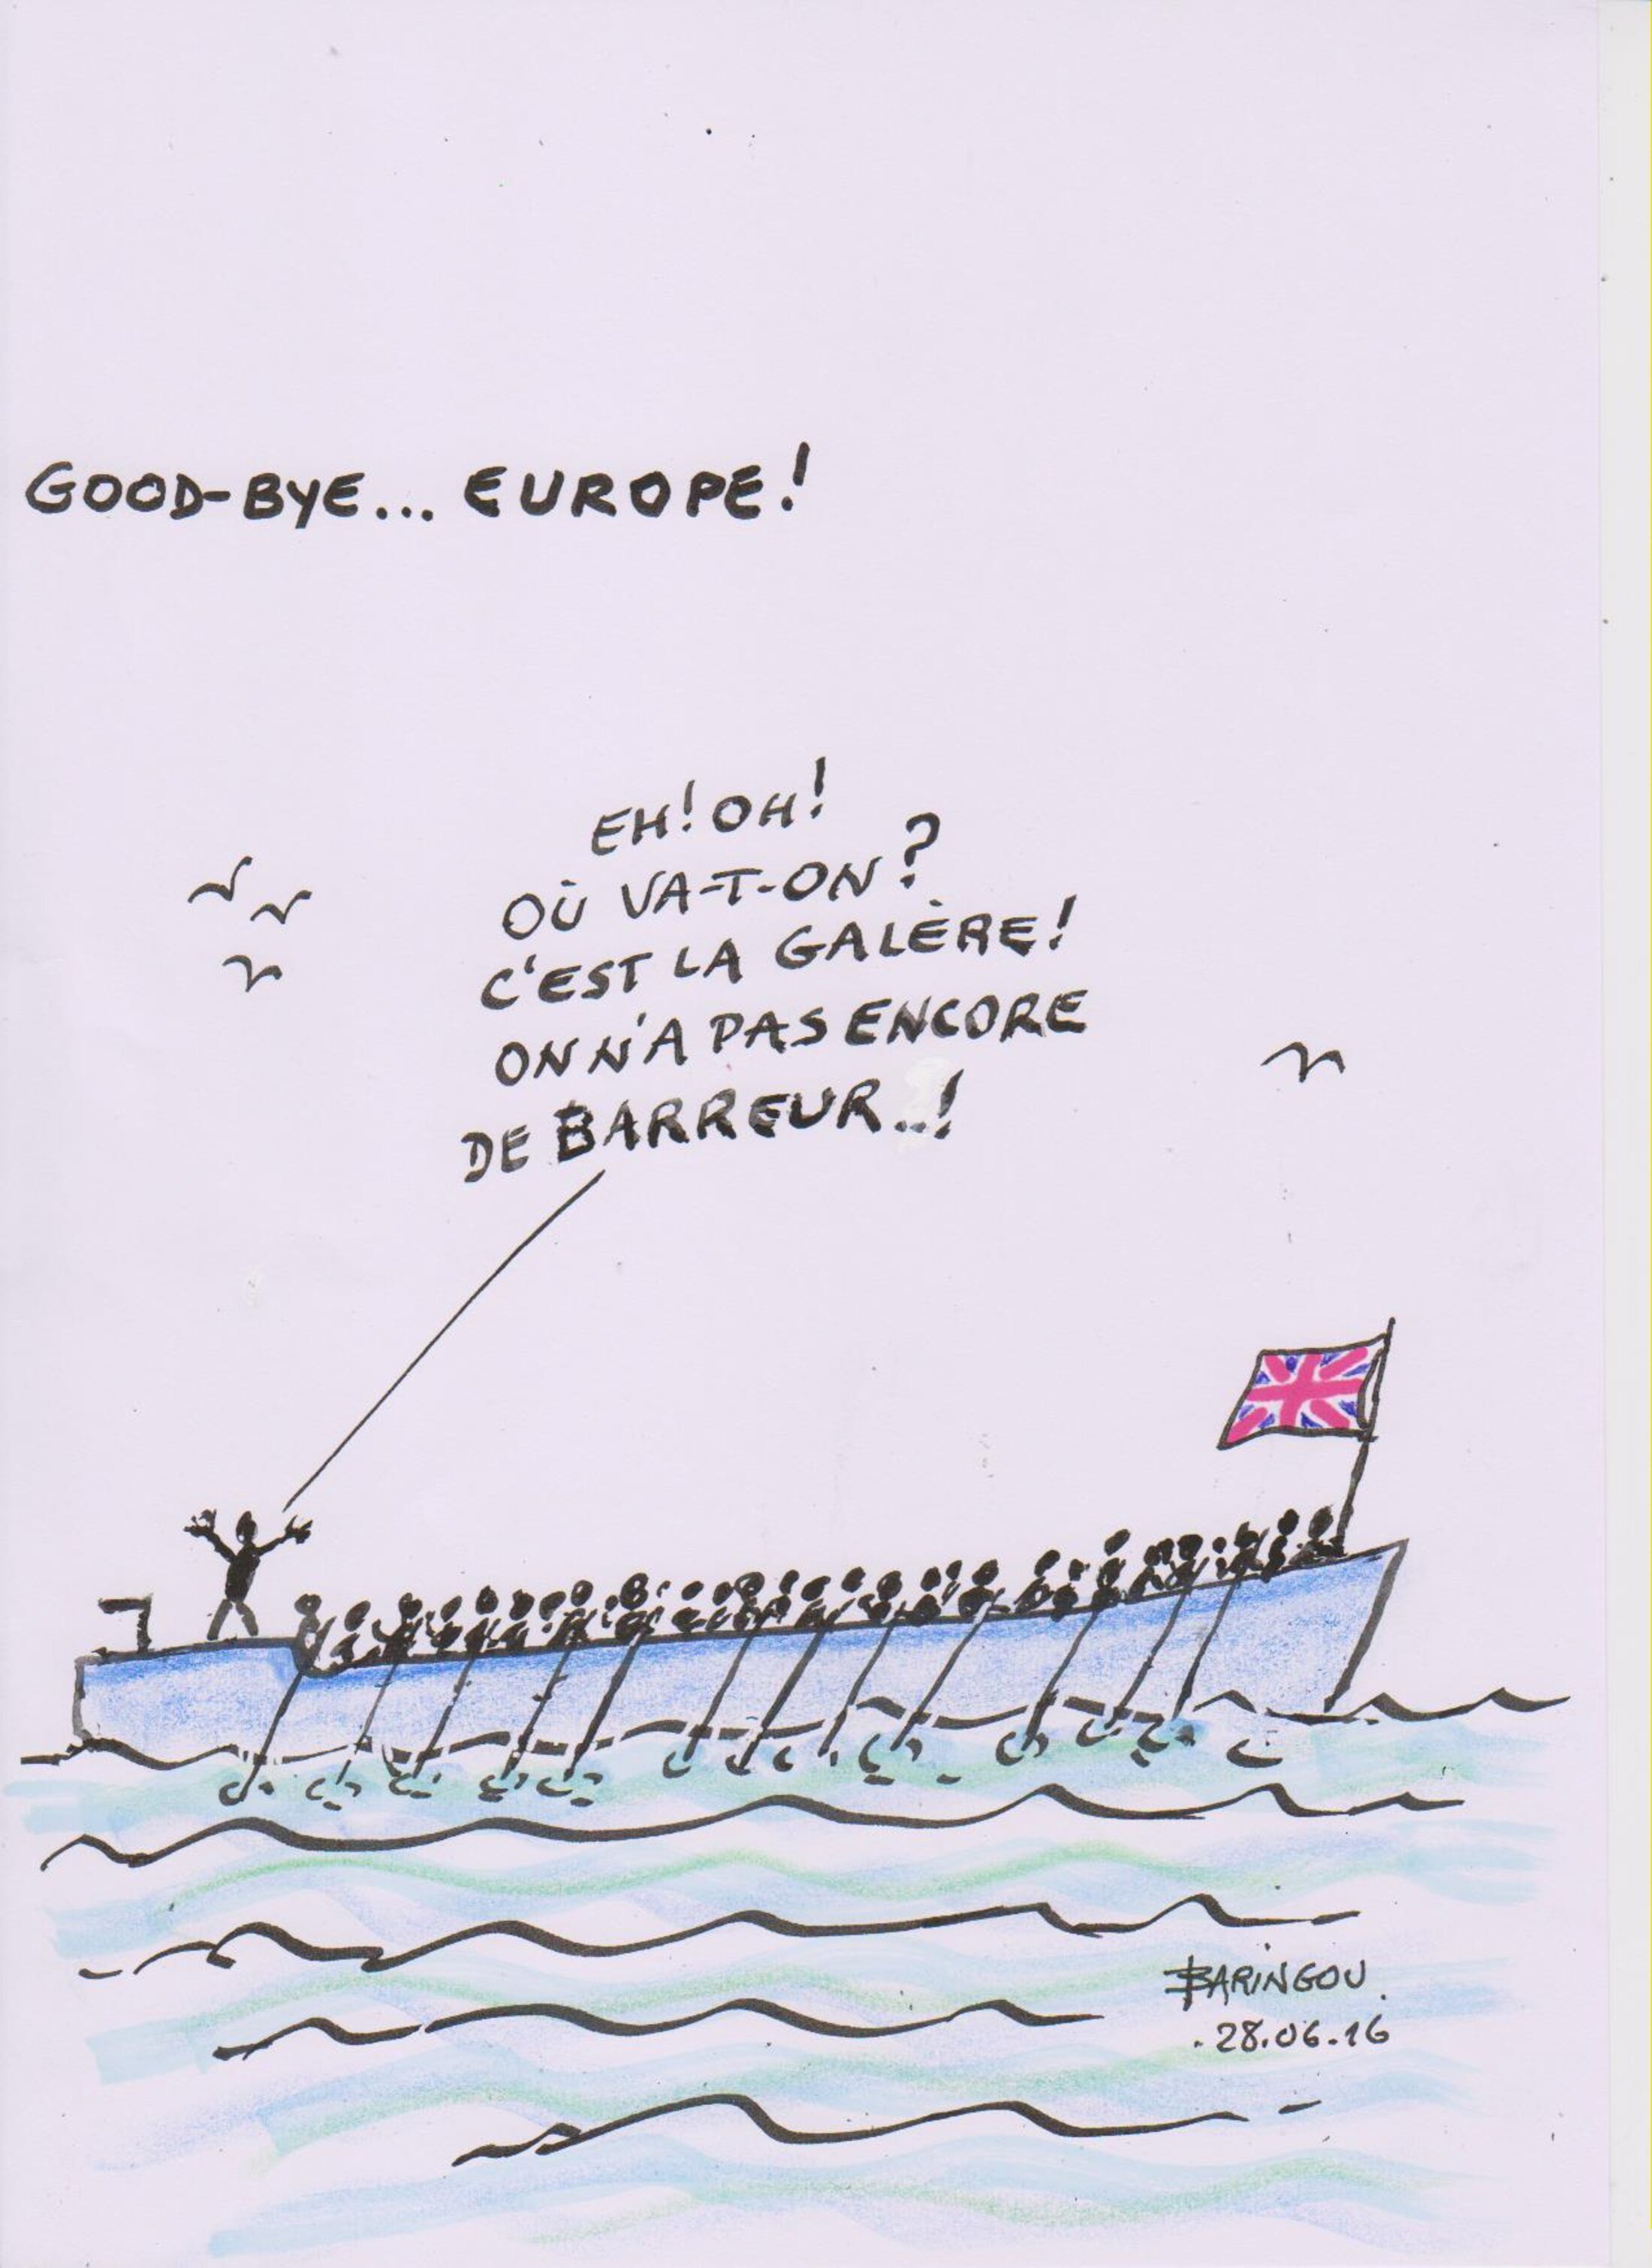 GOOD-BYE... EUROPE!
EH! OH!
OÙ VA-T-ON?
C'EST LA GALÈRE!
ON N'A PAS ENCORE
DE BARREUR..!
BARINGOU.
.28.06.16